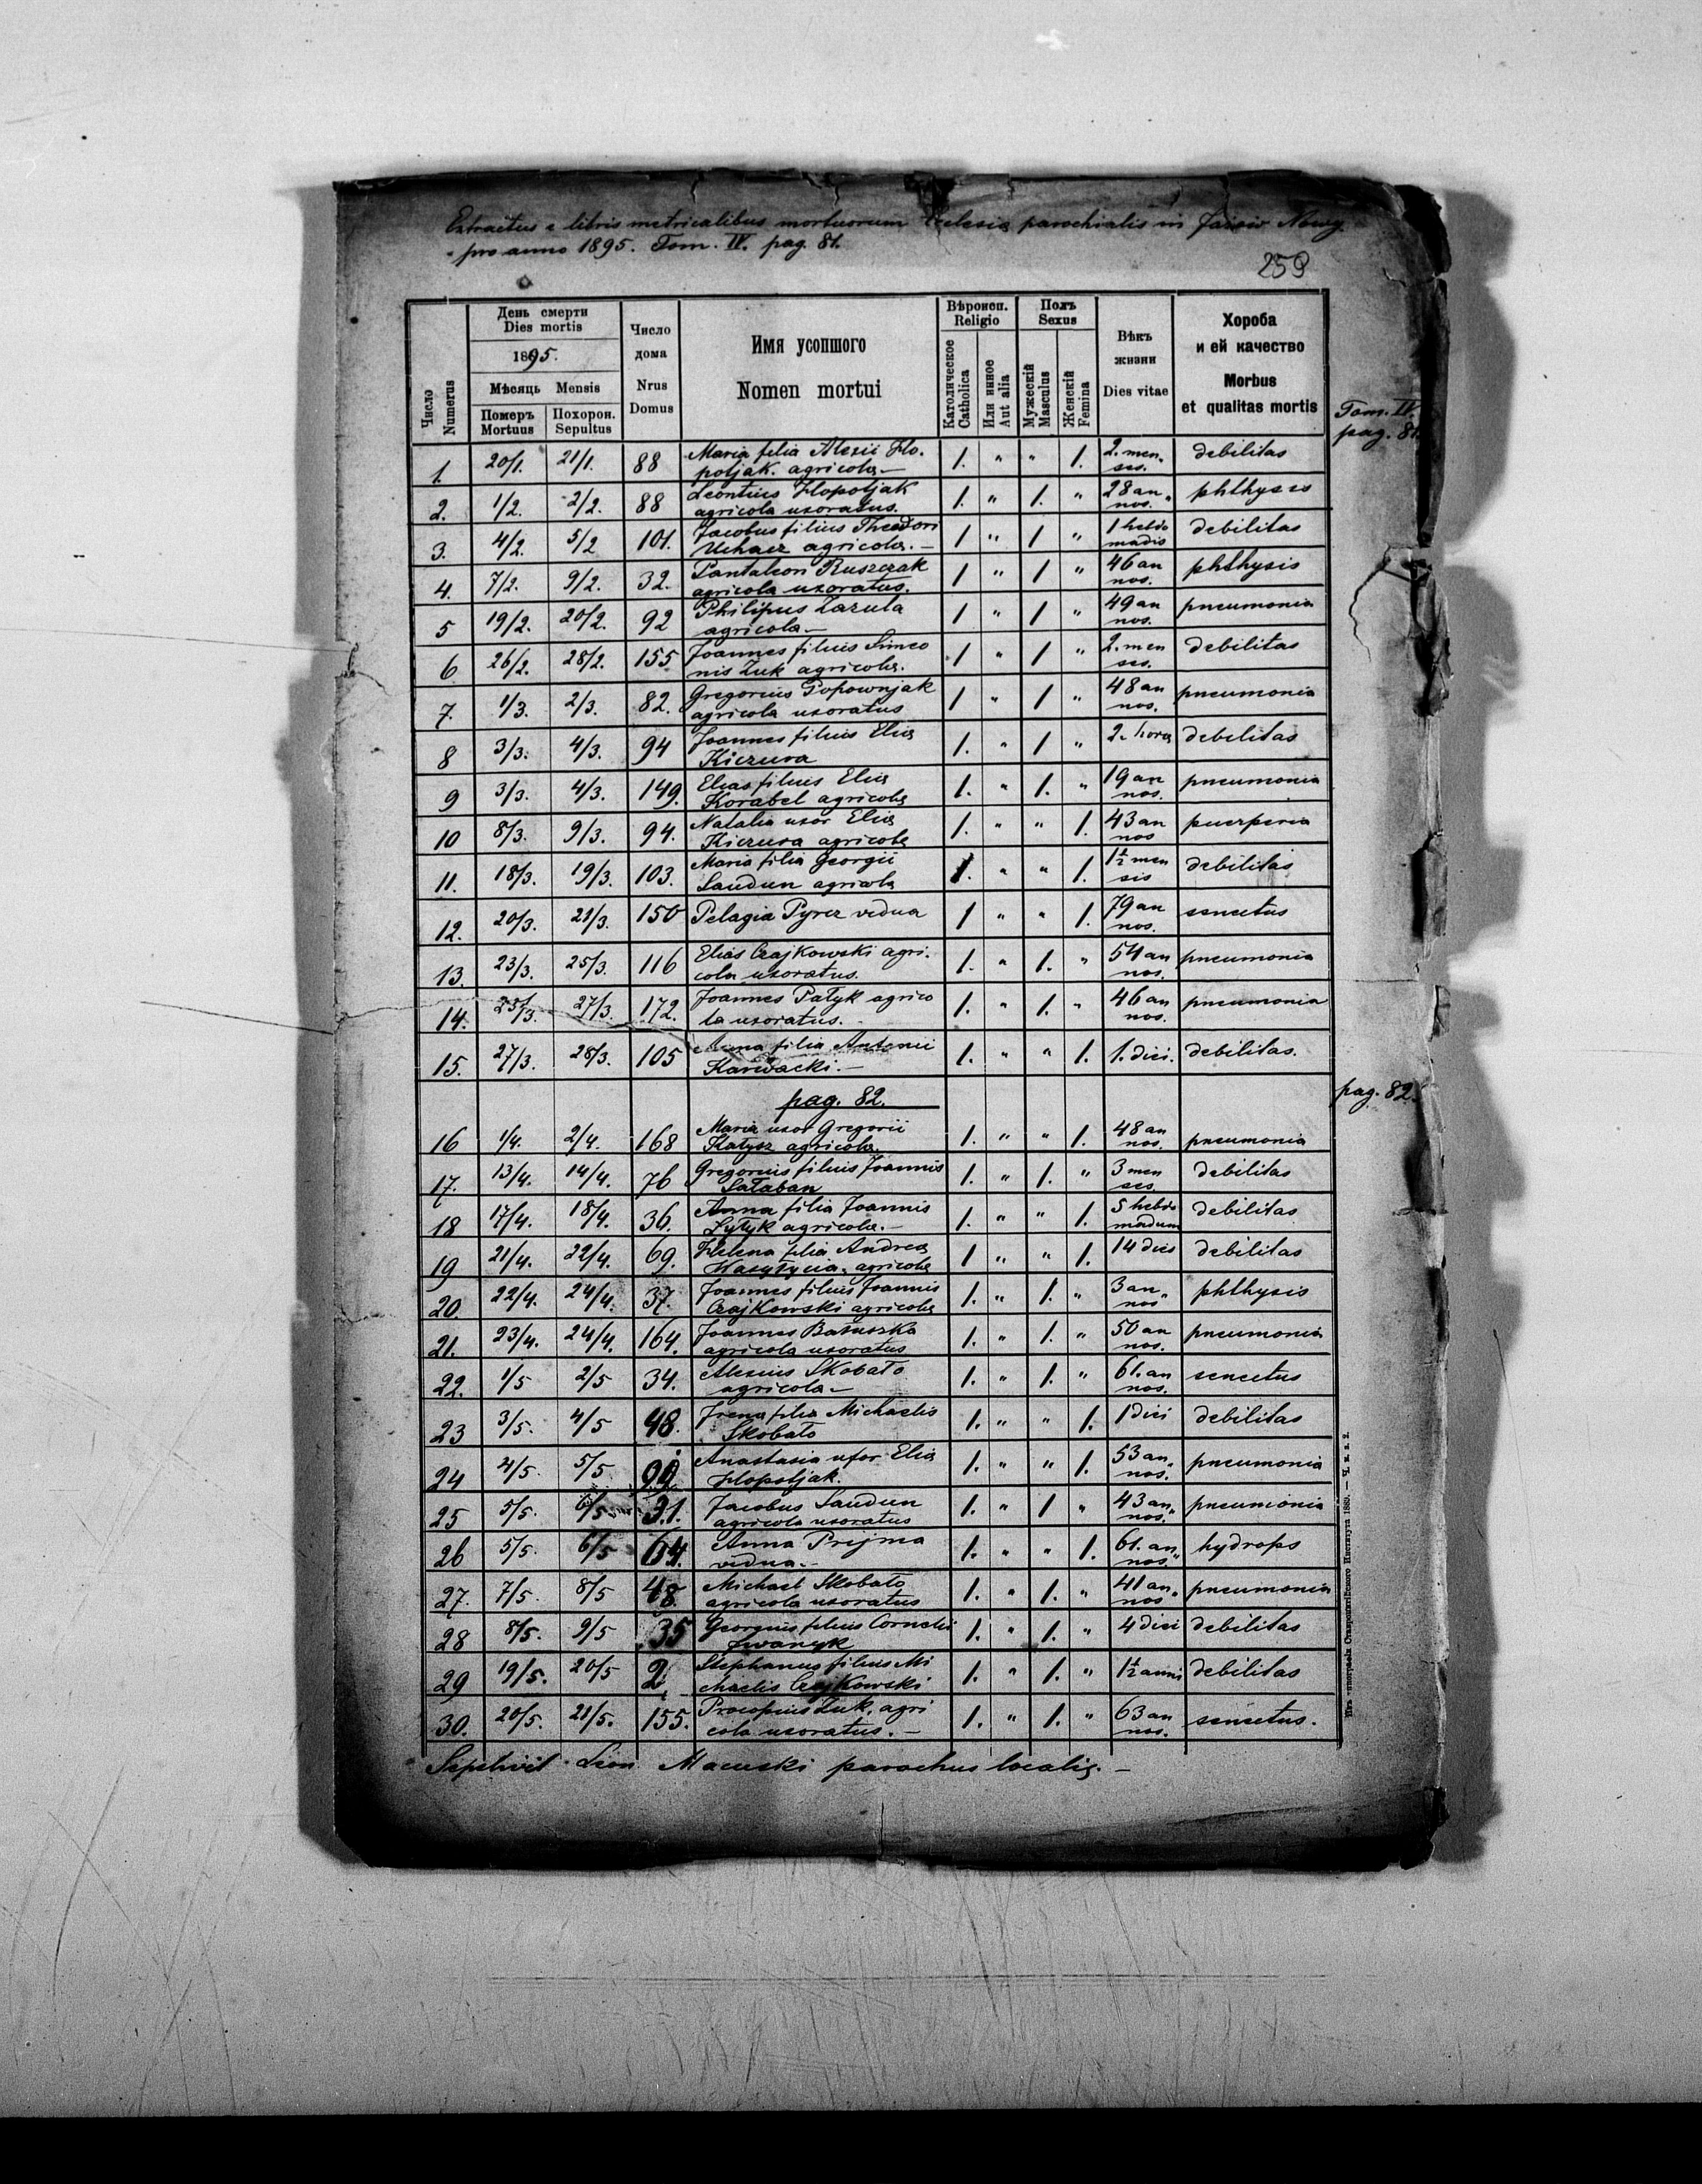 Extractus e libris metricalibus mortuorum Ecclesiæ parochialis in
pro anno 1895. Tom. IV. pag. 81.
259
Число Numerus
День смерти
Dies mortis
1895.
Мѣсяць Mensis
Померъ Mortuus
Похорон. Sepultus
Число дома
Nrus Domus
Имя усопшого
Nomen mortui
Вѣроисп. Religio
Католическое Catholica
Или инное Aut alia
Полъ Sexus
Мужескій Masculus
Женскій Femina
Вѣкъ жизни
Dies vitae
Хороба и ей качество
Morbus et qualitas mortis
Tom. IV.
pag. 81.
1. 20/1. 21/1. 88 Maria filia Alexii Hlo. 1. " " 1. 2. men. debilitas
potjak. agricolæ.— ses.
2. 1/2. 2/2. 88 Leontius Hlopotjak 1. " 1. " 28 an phthysis
agricola uxoratus. nos.
3. 4/2. 5/2 101. Jacobus filius Theodori 1 " 1 " 1 hebdo debilitas
Uchacz agricolæ.— madis
4. 7/2. 9/2. 32. Pantaleon Ruszczak 1 " 1 " 46 an phthysis
agricola uxoratus. nos.
5 19/2. 20/2. 92 Philipus Zazula 1 " 1 " 49 an pneumonia
agricola— nos.
6 26/2. 28/2. 155 Joannes filius Simeo 1 " 1 " 2. men debilitas
nis Zuk agricolæ. ses.
7. 1/3. 2/3. 82. Gregorius Popownjak 1 " 1 " 48 an pneumonia
agricola uxoratus nos.
8 3/3. 4/3. 94 Joannes filius Eliæ 1. " 1 " 2. horæ debilitas
Kiczura
9 3/3. 4/3. 149. Elias filius Eliæ 1. " 1. " 19 an pneumonia
Korabel agricolæ nos.
10 8/3. 9/3. 94. Natalia uxor Eliæ 1. " " 1. 43 an puerperia
Kiczura agricolæ nos
11. 18/3. 19/3. 103. Maria filia Georgii 1. " " 1. 1½ men debilitas
Saudun agricolæ sis
12. 20/3. 21/3. 150 Pelagia Pyrcz vidua 1 " " 1. 79 an senectus
nos.
13. 23/3. 25/3. 116 Elias Czajkowski agri. 1. " 1. " 54 an pneumonia
cola uxoratus. nos.
14. 25/3. 27/3. 172. Joannes Patyk agrico 1. " 1. " 46 an pneumonia
la uxoratus. nos.
15. 27/3. 28/3. 105 Anna filia Antonii 1. " " 1. 1. diei. debilitas.
Karwacki.—
pag. 82. pag. 82.
16 1/4. 2/4. 168 Maria uxor Gregorii 1. " " 1. 48 an pneumonia
agricolæ. nos.
17. 13/4. 14/4. 76 Gregorius filius Joannis 1. " 1. " 3 men debilitas
Sałaban ses.
18 17/4. 18/4. 36. Anna filia Joannis 1. " " 1. 5 hebdo debilitas
agricolæ.— madum
19 21/4. 22/4. 69. Helena filia Andreæ 1 " " 1. 14 dies debilitas
agricolæ
20. 22/4. 24/4. 37. Joannes filius Joannis 1. " 1. " 3 an phthysis
Czajkowski agricolæ nos
21. 23/4. 24/4. 164. Joannes Batuszka 1. " 1. " 50 an pneumonia
agricola uxoratus nos.
22. 1/5 2/5 34. Alexius Skobało 1. " 1. " 61. an senectus
agricola— nos.
23 3/5. 4/5 48. Irena filia Michaelis 1. " " 1. 1 diei debilitas
Skobało
24 4/5. 5/5. Anastasia uxor Eliæ 1. " " 1. 53 an pneumonia
Hlopotjak. nos.
25 5/5. 6/5 31. Jacobus Saudun 1. " 1 " 43 an pneumonia
agricola uxoratus nos.
26 5/5. 6/5 64. Anna Prijma 1. " " 1. 61. an hydrops
vidua.— nos.
27. 7/5. 8/5 48. Michael Skobało 1. " 1. " 41 an pneumonia
agricola uxoratus nos
28 8/5. 9/5 35 Georgius filius Cornelii 1. " 1. " 4 diei debilitas
Iwanyk
29 19/5. 20/5 2. Stephanus filius Mi 1. " 1. " 1½ anni debilitas
chaelis Czajkowski
30. 20/5. 21/5. 155. Procopius Zuk, agri 1. " 1. " 63 an senectus.
cola uxoratus.— nos.
Sepelivit Leon parochus localis.—
Изъ типографіи Ставропигійского Института 1889. — Ч. в. 2.